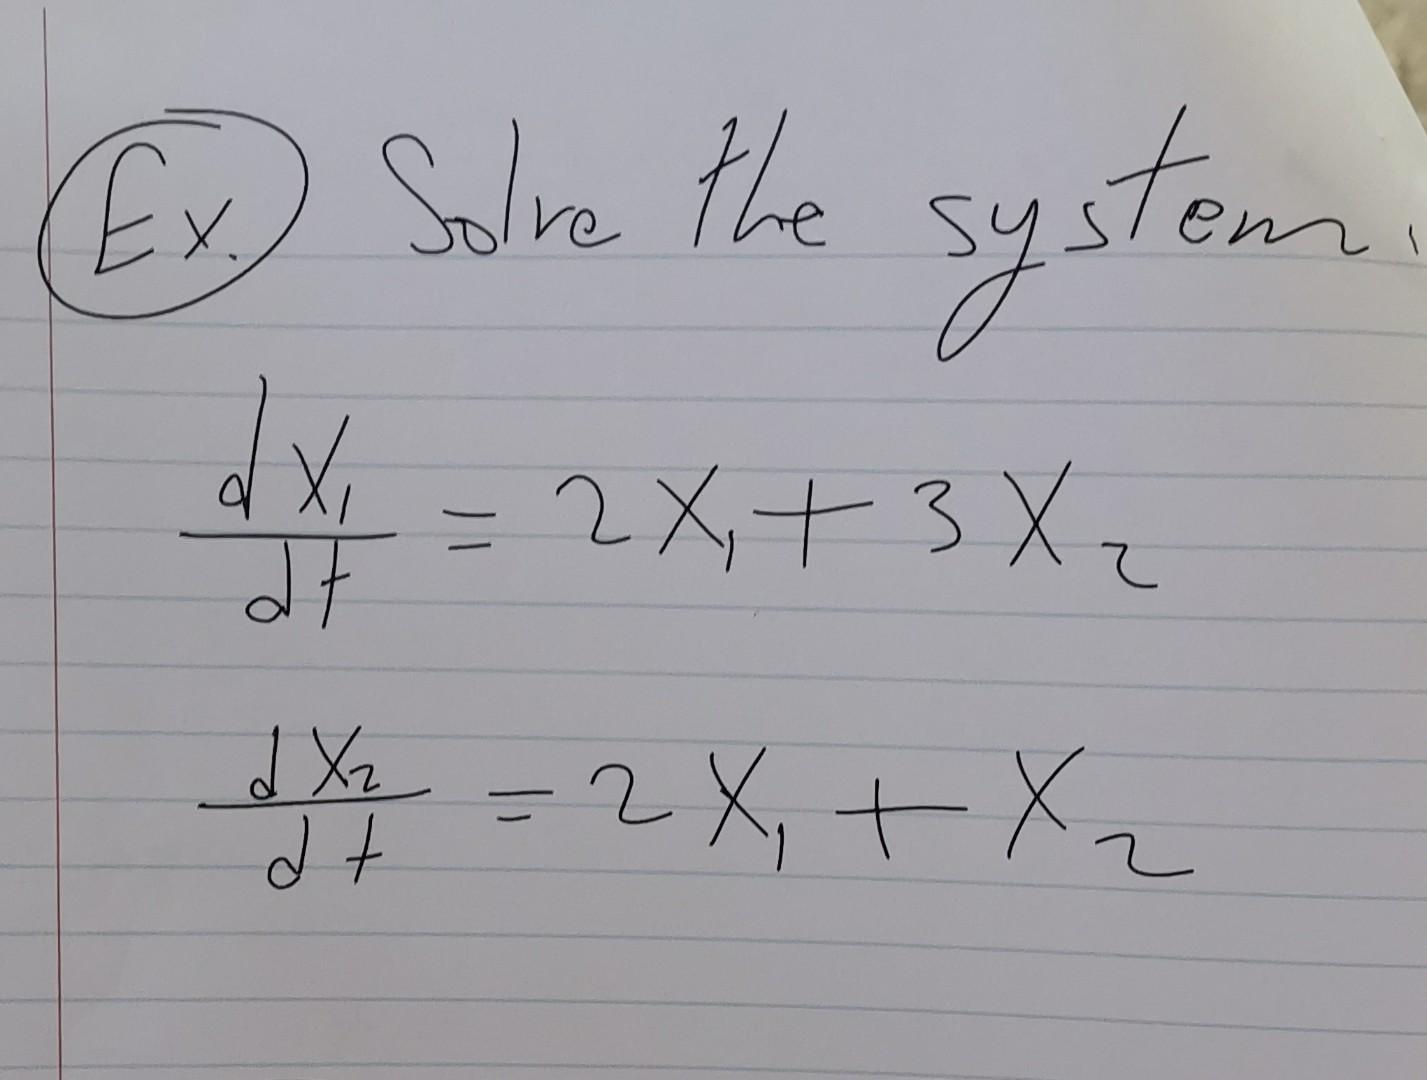 Ex. Solve the system.
dX₁/dt = 2X₁ + 3X₂
dX₂/dt = 2X₁ + X₂